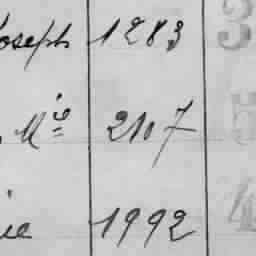 Joseph 1283 3
Mie 2107 5
ie 1992 4